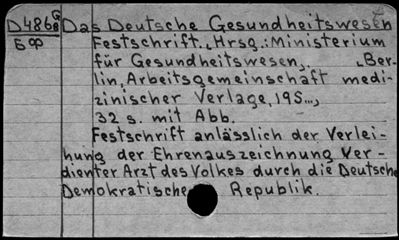 D486 G8 Das Deutsche Gesundheitswesen
БФ Festschrift. Hrsg.: Ministerium
für Gesundheitswesen. Ber-
lin, Arbeitsgemeinschaft medi-
zinischer Verlage, 195...,
32 s. mit Abb.
Festschrift anlässlich der Verlei-
hung der Ehrenauszeichnung Ver-
dienter Arzt des Volkes durch die Deutsche
Demokratische Republik.